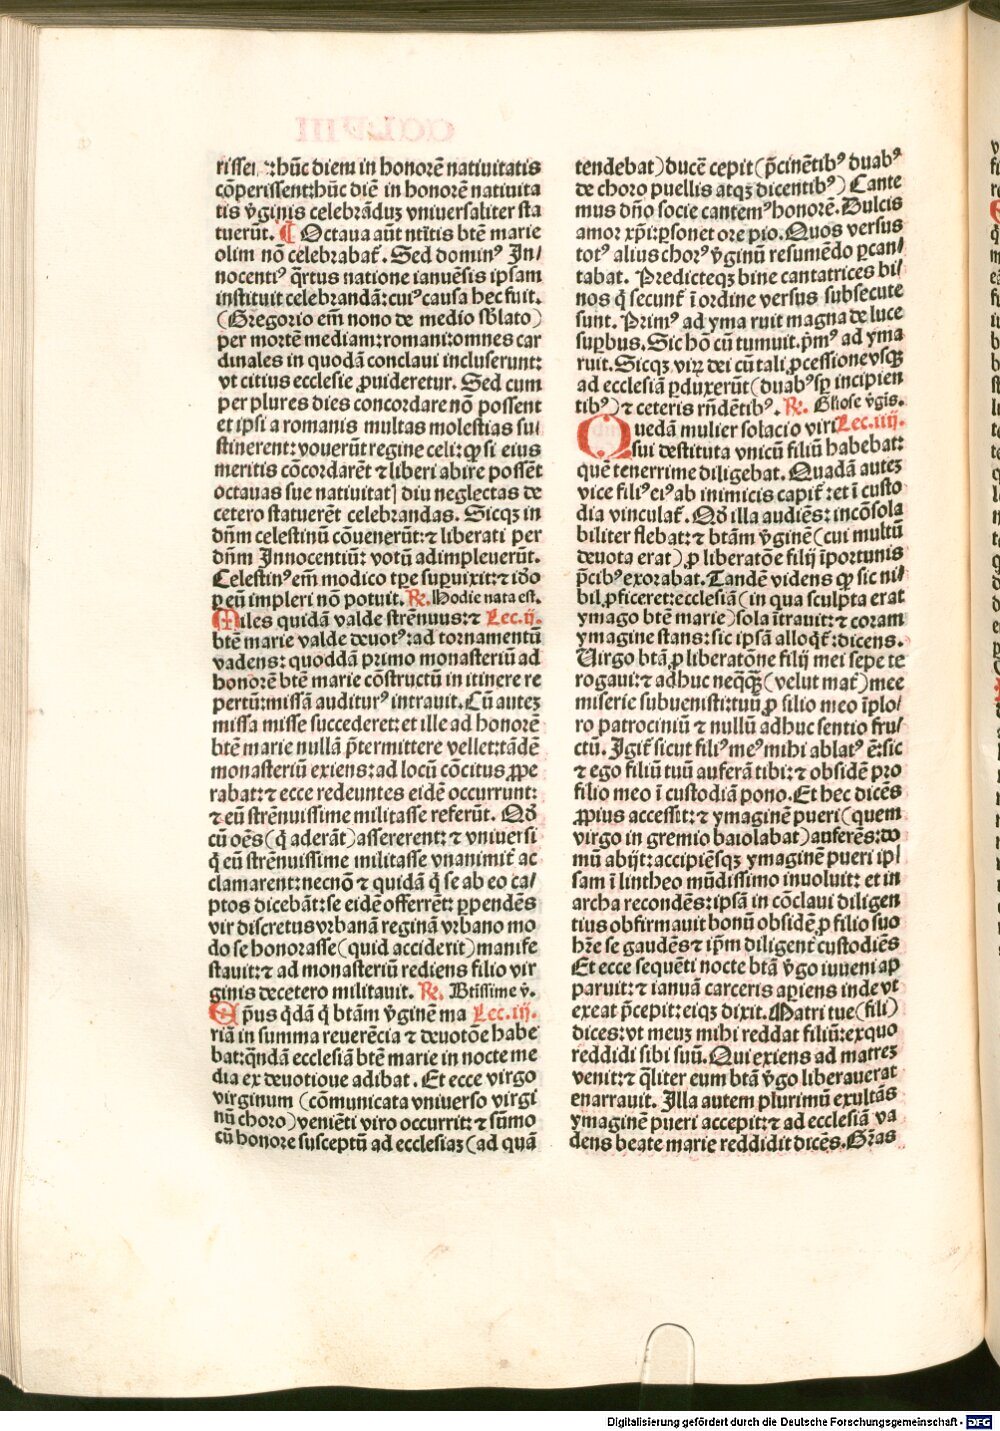 rissei⁊ : hūc diem in honorē natiuitatis
cōperissent:hūc diē in honorē natiuita
tis v̄ginis celebrāduꝫ vniuersaliter sta
tuerūt. ¶ Octaua aūt ntītis btē marie
olim nō celebrabat᷑. Sed dominꝰ In/
nocentiꝰ q̄rtus natione ianuēsis ipsam
instituit celebrandā:cuiꝰ causa hec fuit.
(Gregorio em̄ nono de medio sb̄lato)
per mortē mediam:romani:omnes car
dinales in quodā conclaui incluserunt:
vt citius ecclesie ꝓuideretur. Sed cum
per plures dies concordare nō possent
et ipsi a romanis multas molestias su/
stinerent:vouerūt regine celi:ꝙ si eius
meritis cōcordarēt ⁊ liberi abire possēt
octauas sue natiuitatꝭ diu neglectas de
cetero statuerēt celebrandas. Sicqꝫ in
dn̄m celestinū cōuenerūt:⁊ liberati per
dn̄m Innocentiū: votū adimpleuerūt.
Celestinꝰ em̄ modico tp̄e suꝑuixit:⁊ iō
ꝑ eū impleri nō potuit. ℟. Hodie nata est.
Miles quidā valde strēnuus:⁊ Lec.ij.
btē marie valde deuotꝰ:ad tornamentū
vadens: quoddā primo monasteriū ad
honorē btē marie cōstructū in itinere re
pertū:missā auditurꝰ intrauit. Cū auteꝫ
missa misse succederet:et ille ad honorē
btē marie nullā p̄termittere vellet:tādē
monasteriū exiens:ad locū cōcitus ꝓpe
rabat:⁊ ecce redeuntes eidē occurrunt:
⁊ eū strēnuissime militasse referūt. Qd̄
cū oēs (q̄ aderāt) assererent:⁊ vniuersi
q̄ eū strēnuissime militasse vnanimit᷑ ac
clamarent:necnō ⁊ quidā q̄ se ab eo ca/
ptos dicebāt:se eidē offerrēt: ꝑpendēs
vir discretus vrbanā reginā vrbano mo
do se honorasse (quid acciderit) manife
stauit:⁊ ad monasteriū rediens filio vir
ginis decetero militauit. ℟. Btissime v̄.
Ep̄us q̄dā q̄ btām v̄ginē ma Lec.iij.
riā in summa reuerēcia ⁊ deuotōe habe
bat:q̄ndā ecclesiā btē marie in nocte me
dia ex deuotioue adibat. Et ecce virgo
virginum (cōmunicata vniuerso virgi
nū choro) veniēti viro occurrit:⁊ sūmo
cū honore susceptū ad ecclesiaꝫ (ad quā
tendebat) ducē cepit (p̄cinētibꝰ duabꝰ
de choro puellis atqꝫ dicentibꝰ) Cante
mus dn̄o socie cantemꝰ honorē. Dulcis
amor xp̄i:ꝑsonet ore pio. Quos versus
totꝰ alius chorꝰ v̄ginū resumēdo ꝑcan/
tabat. Predicteqꝫ bine cantatrices bi/
nos q̄ secunt᷑ ī ordine versus subsecute
sunt. Primꝰ ad yma ruit magna de luce
suꝑbus. Sic hō cū tumuit. p̄mꝰ ad yma
ruit. Sicqꝫ virꝫ dei cū tali ꝓcessione vsqꝫ
ad ecclesiā ꝑduxerūt (duabꝰ sꝑ incipien
tibꝰ) ⁊ ceteris rn̄dētibꝰ. ℟. Gliose v̄gis.
Quedā mulier solacio viri Lec.iiij.
sui destituta vnicū filiū habebat:
quē tenerrime diligebat. Quadā auteꝫ
vice filiꝰ eiꝰ ab inimicis capit᷑:et ī custo
dia vinculat᷑. Qd̄ illa audiēs: incōsola
biliter flebat:⁊ btām v̄ginē (cui multū
deuota erat) ꝓ liberatōe filij īportunis
p̄cibꝰ exorabat. Tandē videns ꝙ sic ni/
bil ꝓficeret:ecclesiā (in qua sculpta erat
ymago btē marie) sola ītrauit:⁊ coram
ymagine stans: sic ipsā alloqt᷑: dicens.
Uirgo btā ꝓ liberatōne filij mei sepe te
rogaui:⁊ adhuc neqq̄ꝫ (velut mat᷑) mee
miserie subuenisti:tuū ꝓ filio meo īplo/
ro patrociniū ⁊ nullū adhuc sentio fru/
ctū. Igit᷑ sicut filiꝰ meꝰ mihi ablatꝰ ē:sic
⁊ ego filiū tuū auferā tibi:⁊ obsidē pro
filio meo ī custodiā pono. Et hec dicēs
ꝓpius accessit:⁊ ymaginē pueri (quem
virgo in gremio baiolabat) auferēs:do
mū abijt:accipiēsqꝫ ymaginē pueri ip/
sam ī lintheo mūdissimo inuoluit: et in
archa recondēs:ipsā in cōclaui diligen
tius obfirmauit bonū obsidē ꝓ filio suo
hr̄e se gaudēs ⁊ ip̄m diligent᷑ custodiēs
Et ecce sequēti nocte btā v̄go iuueni ap
paruit:⁊ ianuā carceris aꝑiens inde vt
exeat p̄cepit:eiqꝫ dixit. Matri tue (fili)
dices:vt meuꝫ mihi reddat filiū:ex quo
reddidi sibi suū. Qui exiens ad matreꝫ
venit:⁊ q̄liter eum btā v̄go liberauerat
enarrauit. Illa autem plurimū exultās
ymaginē pueri accepit:⁊ ad ecclesiā va
dens beate marie reddidit dicēs. Gr̄as
Digitalisierung gefördert durch die Deutsche Forschungsgemeinschaft - DFG